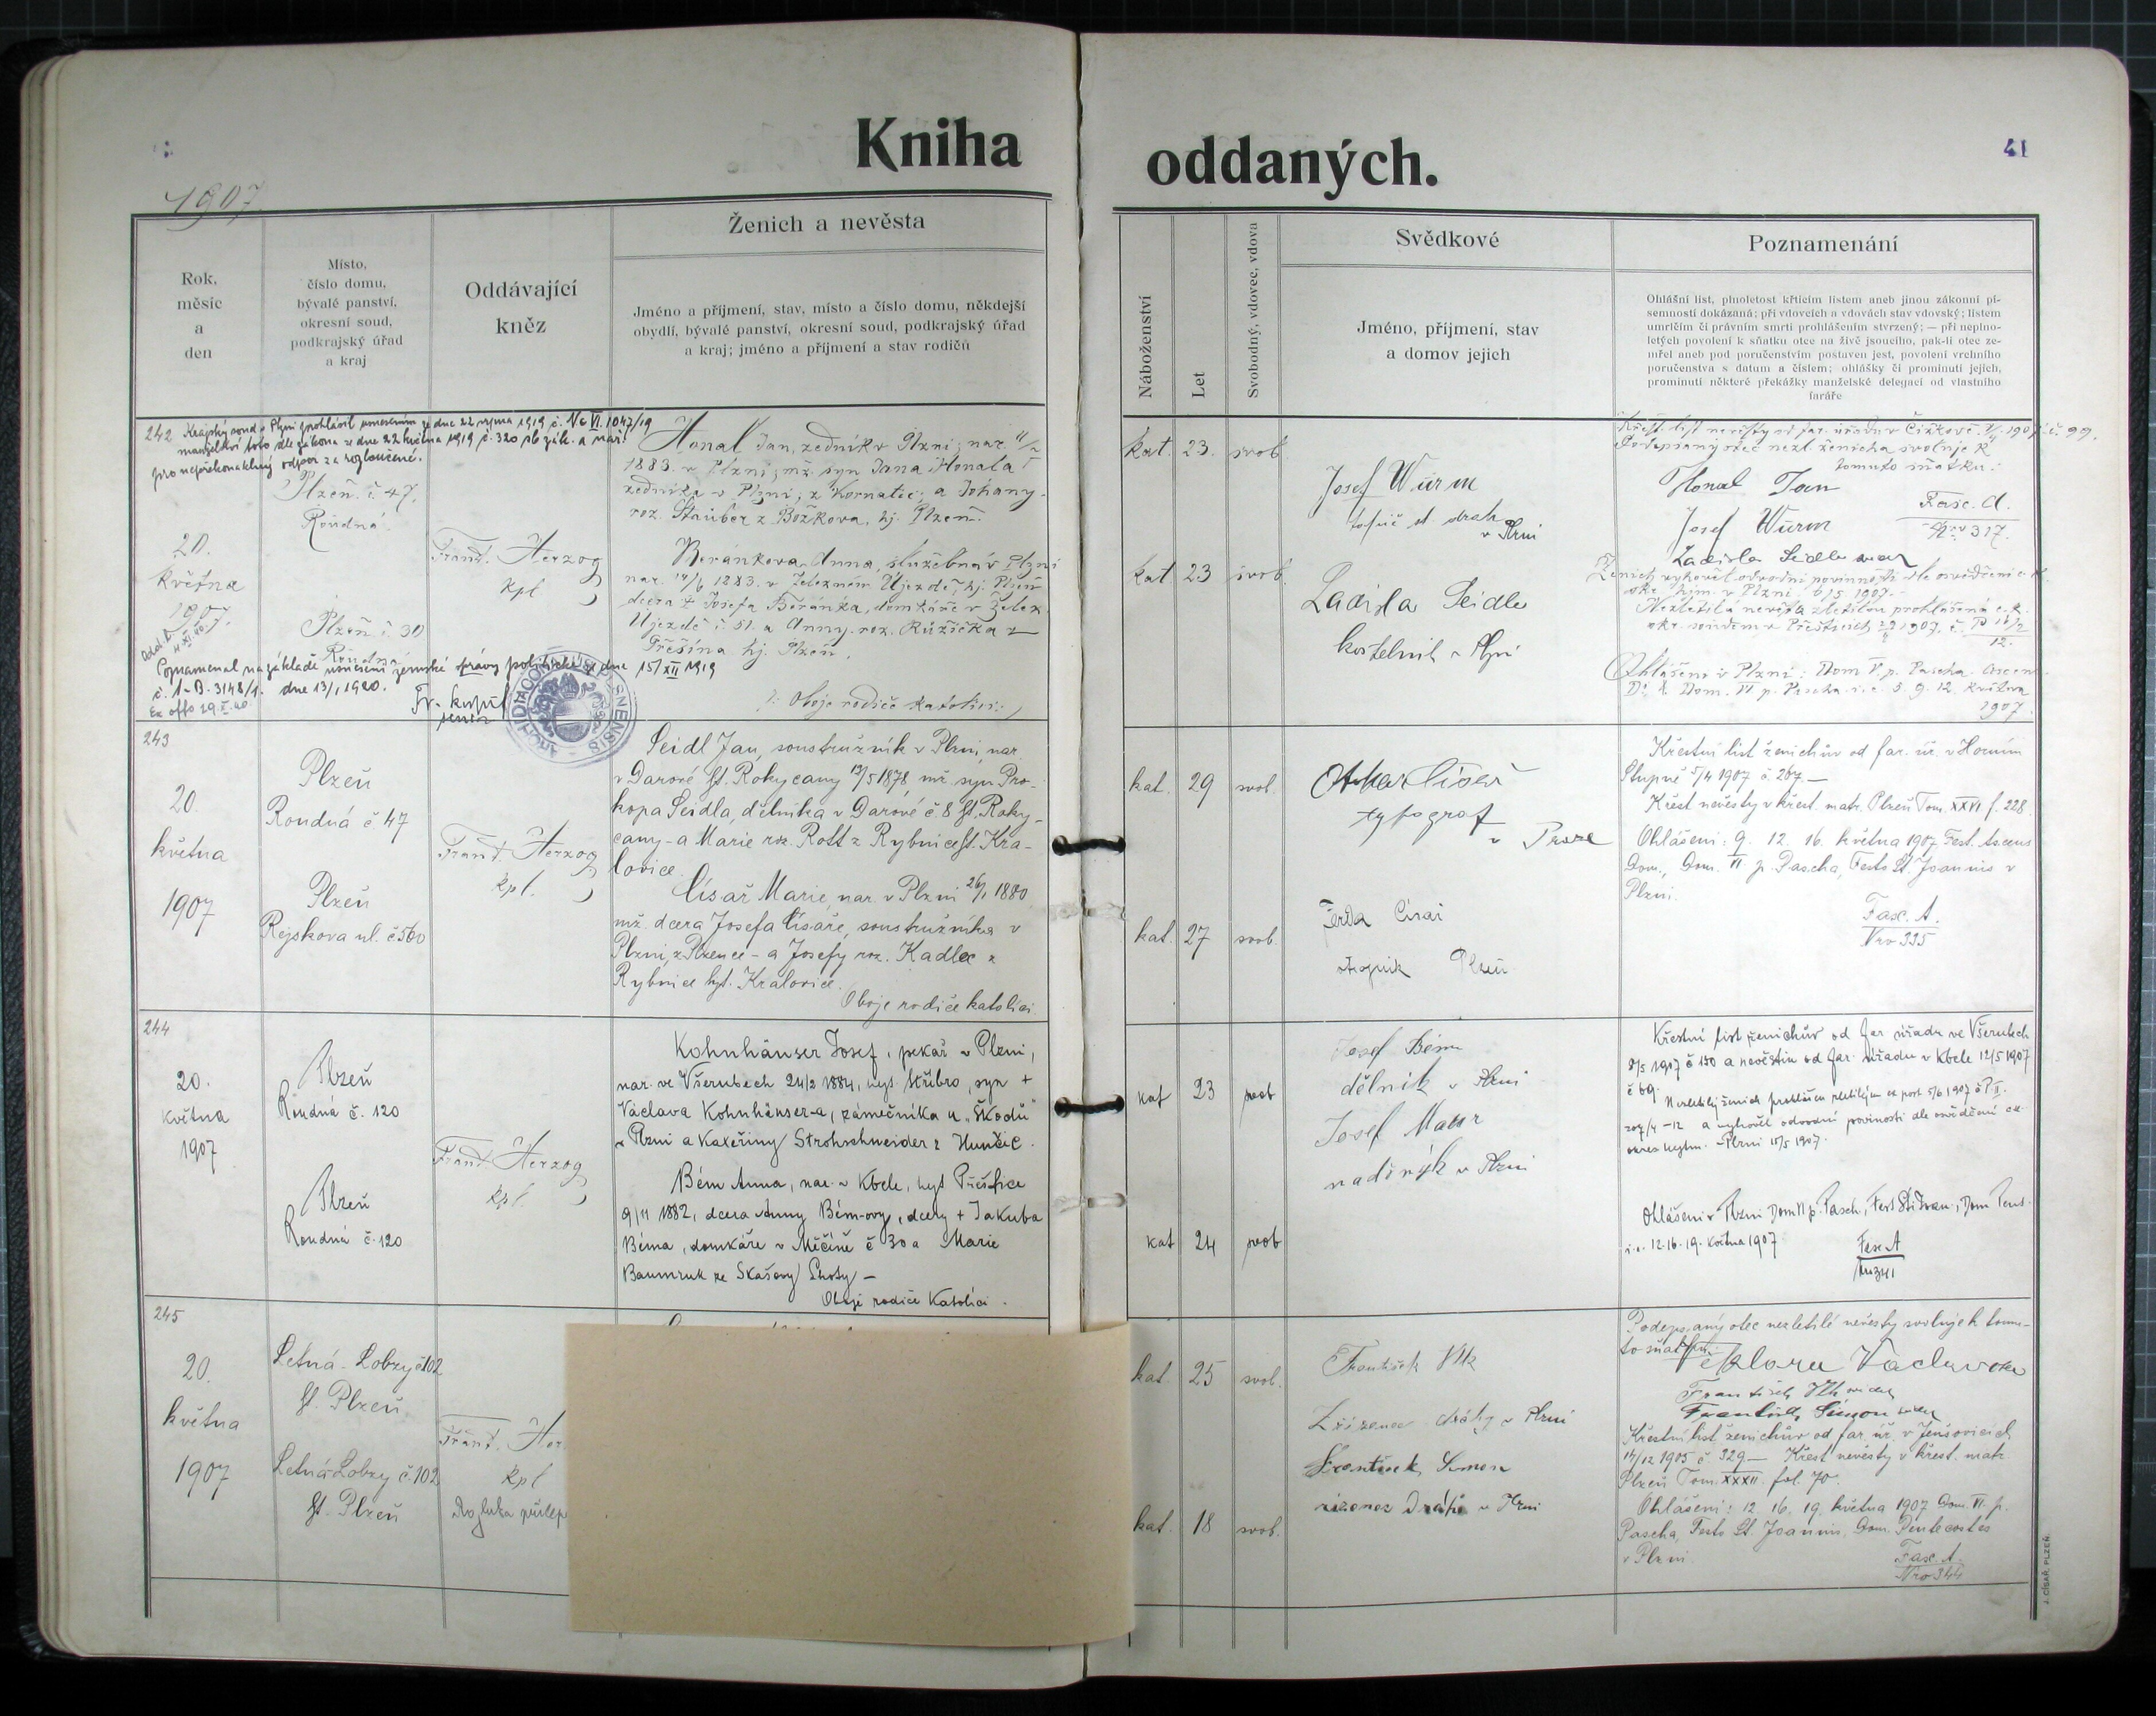 Kniha oddaných.
41
1907
Rok,
měsíc
a
den
Místo,
číslo domu,
bývalé panství,
okresní soud,
podkrajský úřad
a kraj
Oddávající
kněz
Ženich a nevěsta
Jméno a příjmení, stav, místo a číslo domu, někdejší
obydlí, bývalé panství, okresní soud, podkrajský úřad
a kraj; jméno a příjmení a stav rodičů
Náboženství
Let
Svobodný, vdovec, vdova
Svědkové
Jméno, příjmení, stav
a domov jejich
Poznamenání
Ohlášní list, plnoletost křticím listem aneb jinou zákonní pí-
semností dokázaná; při vdovcích a vdovách stav vdovský; listem
umrlčím či právním smrti prohlášením stvrzený; — při neplno-
letých povolení k sňatku otce na živě jsoucího, pak-li otec ze-
mřel aneb pod poručenstvím postaven jest, povolení vrchního
poručenstva s datum a číslem; ohlášky či prominutí jejich,
prominutí některé překážky manželské delegací od vlastního
faráře
242 Krajský soud v Plzni prohlásil usnesením ze dne 22 října 1919 č. Nc VI 1047/19
manželství toto dle zákona ze dne 22 května 1919 č. 320 sb. zák. a nař.
pro nepřekonatelný odpor za rozloučené.
Plzeň č. 47.
Roudná
20.
května
1907.
Plzeň č. 30
Roudná
Frant. Herzog
kpl
Honal Jan, zedník v Plzni; nar. 11/5
1883 v Plzni; mž. syn Jana Honala
zedníka v Plzni, z Kornatic, a Johany
roz. Stauber z Božkova, hj. Plzeň.
Beránkova Anna, služebná v Plzni
nar. 14/6 1883 v Železném Újezdě, hj. Plzeň
dcera + Josefa Beránka, domkáře v Želez.
Újezdě č. 51. a Anny roz. Růžička z
Třešina hj. Plzeň.
/: Oboje rodiče katolíci :/
Poznamenal na základě usnesení zemské správy politické ze dne 15/XII 1919
č. 1-B-3148/1. dne 13/1 1920.
kat. 23. svob.
kat 23 svob
Josef Wurm
topič st. drah
v Plzni
Ladisla Seidle
kostelník v Plzni
Křest. list nevěsty od far. úřadu v Čížkově 1907 č. 99.
Podepsaný otec nezl. ženicha svoluje k
tomuto sňatku:
Honal Jan
Josef Wurm
Ladisla Seidle
Fasc. A.
Nro 317.
Ženich vyhověl odvodní povinnosti dle osvědčení c. k.
okr. hejm. v Plzni 6/5 1907.
Nezletilá nevěsta zletilou prohlášena c. k.
okr. soudem v Přešticích
Ohlášeni v Plzni: Dom V. p. Pascha. Ascen.
Di, Dom. VI p. Pascha i. e. 5. 9. 12. května
1907.
243
20.
května
1907
Plzeň
Roudná č 47
Plzeň
Rejskova ul. č 560
Frant. Herzog
kpl.
Seidl Jan, soustružník v Plzni, nar.
v Darové St. Rokycany 13/5 1878, mž. syn Pro-
kopa Seidla, dělníka v Darové č. 8 St. Roky-
cany - a Marie roz. Rott z Rybnice St. Kra-
lovice.
Císař Marie, nar. v Plzni 26/1 1880
mž. dcera Josefa Císaře, soustružníka v
Plzni, z Plzence - a Josefy roz. Kadlec z
Rybnice hjt. Kralovice.
Oboje rodiče katolíci
kat. 29 svob.
kat. 27 svob.
Otokar Císař
typograf
v Praze
Ferda Císař
strojník Plzeň
Křestní list ženichův od far. úř. v Horním
Stupně 5/4 1907 č. 267. —
Křest nevěsty v křest. matr. Plzeň Tom. XXVI f. 228
Ohlášeni: 9. 12. 16. května 1907 Fest. Ascens
Dom., Dom. VI p. Pascha, Festo St. Joannis v
Plzni.
Fasc. A.
Nro 335
244
20.
května
1907
Plzeň
Roudná č. 120
Plzeň
Roudná č. 120
Frant. Herzog
kpl.
Kohnhäuser Josef, pekař v Plzni,
nar. ve Všerubech 24/2 1884, hejt. Stříbro, syn +
Václava Kohnhäuser-a, zámečníka u „Škodů"
v Plzni a Kateřiny Strohschneider z Hunčic.
Bém Anna, nar. v Kbele, hejt Přeštice
9/11 1882, dcera Anny Bém-ovy, dcery + Jakuba
Béma, domkáře v Měčíně č 30 a Marie
Baumruk ze Skašovy Lhoty —
Oboji rodiče Katolíci.
kat 23 svob
kat 24 svob
Josef Bém
dělník v Plzni
Josef Maur
nádeník v Plzni
Křestní list ženichův od far. úřadu ve Všerubech
8/5 1907 č 130 a nevěstin od far. úřadu v Kbele 12/5 1907
č 69.
207/4 -12 a vyhověl odvodní povinosti dle osvědčení c.k.
okres hejtm. - Plzni 15/5 1907.
Ohlášeni v Plzni Dom VI p. Pasch., Fest Sti Joan., Dom Pent.
i. e. 12. 16. 19. května 1907
Fasc A
Nro 341
245
20.
května
1907
Letná - Lobzy č 102
St. Plzeň
Letná Lobzy č. 102
St. Plzeň
Frant. Her
kpl
Rozluka přilep
kat. 25 svob.
kat. 18 svob.
František Vlk
Zřízenec dráhy v Plzni
František Simon
zřízenec dráhi v Plzni
Podepsaný otec nezletilé nevěsty svoluje k tomu-
to sňatku.
František Vlk svědek
František Simon svědek
Křestní list ženichův od far. úř. v Jenšovicích
14/12 1905 č. 329 — Křest nevěsty v křest. matr.
Plzeň Tom. XXXII. fol. 70.
Ohlášeni: 12. 16. 19. května 1907 Dom. VI. p.
Pascha, Festo St. Joannis, Dom. Pentecostes
v Plzni.
Fasc. A.
Nro 344
J. CÍSAŘ, PLZEŇ.